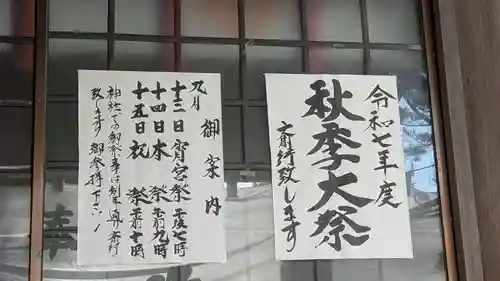 令和七年度
秋季大祭
斎行致します
御案内
九月
十三日 宵宮祭 午后七時
十四日 本祭 午前九時
十五日 祝祭 午前十時
致します 御参拝下さい